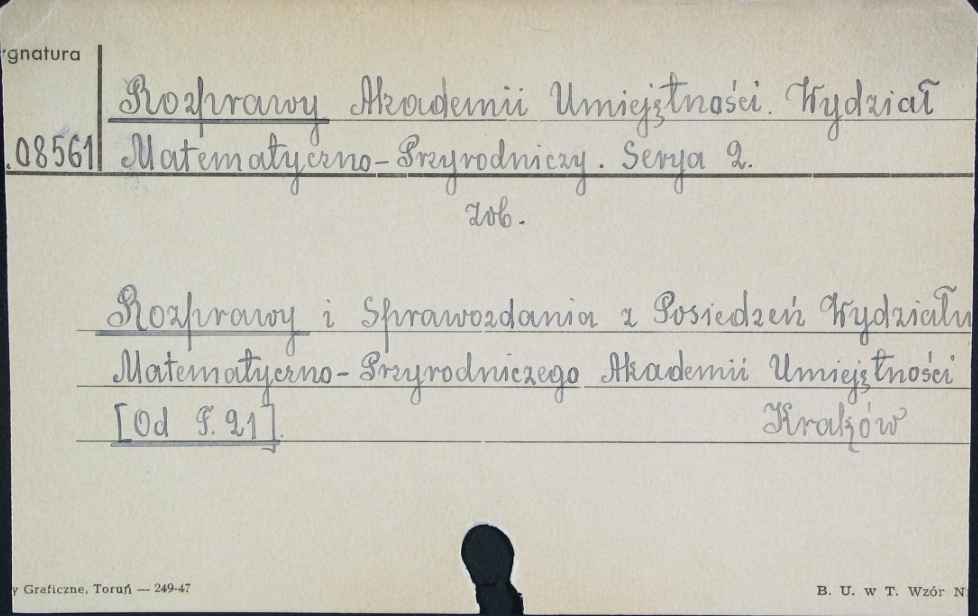 gnatura
Rozprawy Akademii Umiejętności. Wydział
.08561 Matematyczno-Przyrodniczy. Serya 2.
zob.
Rozprawy i Sprawozdania z Posiedzeń Wydziału
Matematyczno-Przyrodniczego Akademii Umiejętności
[Od T. 21]. Kraków
y Graficzne, Toruń — 249-47 B. U. w T. Wzór N